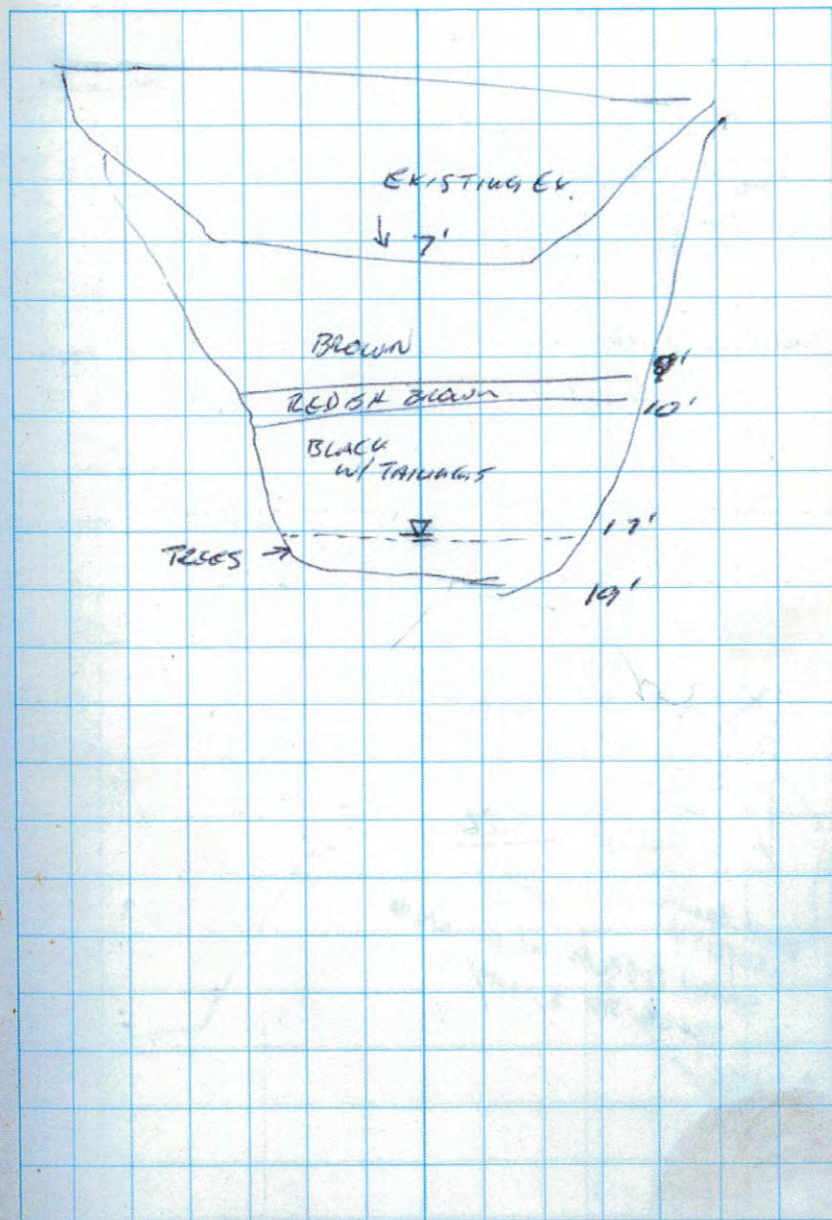 EXISTING EX.
7'
BROWN
9'
REDISH BROWN
10'
BLACK
W/ TAILINGS
17'
TREES
19'